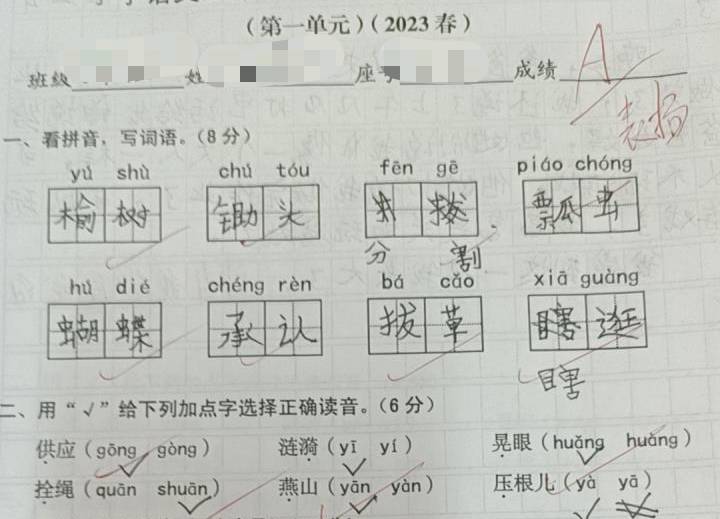 (第一单元)(2023春)
班级 姓 座号 成绩 A
表扬
一、看拼音，写词语。(8分)
yú shù chú tóu fēn gē piáo chóng
榆树 锄头 拔 瓢虫
分 割
hú dié chéng rèn bá cǎo xiā guàng
蝴蝶 承认 拔草 瞎逛
瞎
二、用“√”给下列加点字选择正确读音。(6分)
供应(gōng gòng) 涟漪(yī yí) 晃眼(huǎng huàng)
拴绳(quān shuān) 燕山(yān yàn) 压根儿(yà yā)